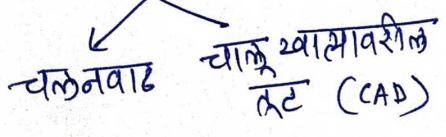 चलनवाढ चालू खात्यावरील
तूट (CAD)